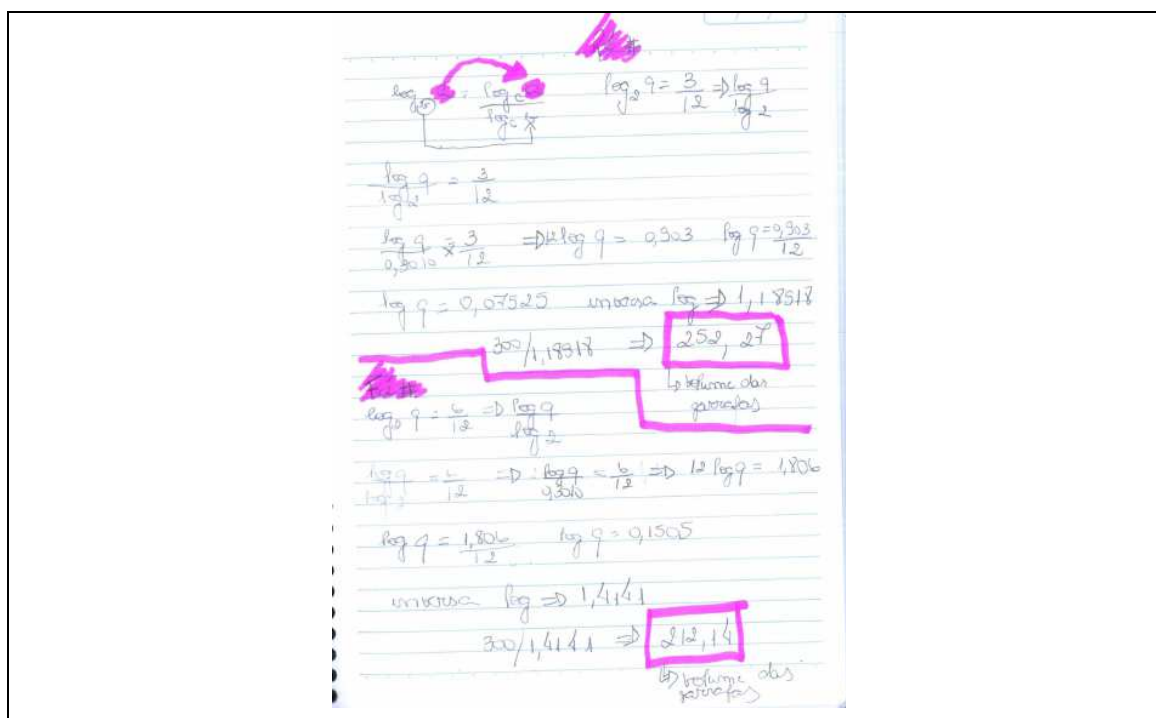 log = log c / log c x    log₂ q = 3/12 ⇒ log q / log 2
log q / log 2 = 3/12
log q / 0,3010 = 3/12 ⇒ 12 log q = 0,903    log q = 0,903/12
log q = 0,07525    inversa log ⇒ 1,18918
300/1,18918 ⇒ 252,27
↳ volume das
garrafas
log₂ q = 6/12 ⇒ log q / log 2
log q / log 2 = 6/12 ⇒ log q / 0,3010 = 6/12 ⇒ 12 log q = 1,806
log q = 1,806/12    log q = 0,1505
inversa log ⇒ 1,4141
300/1,4141 ⇒ 212,14
↳ volume das
garrafas